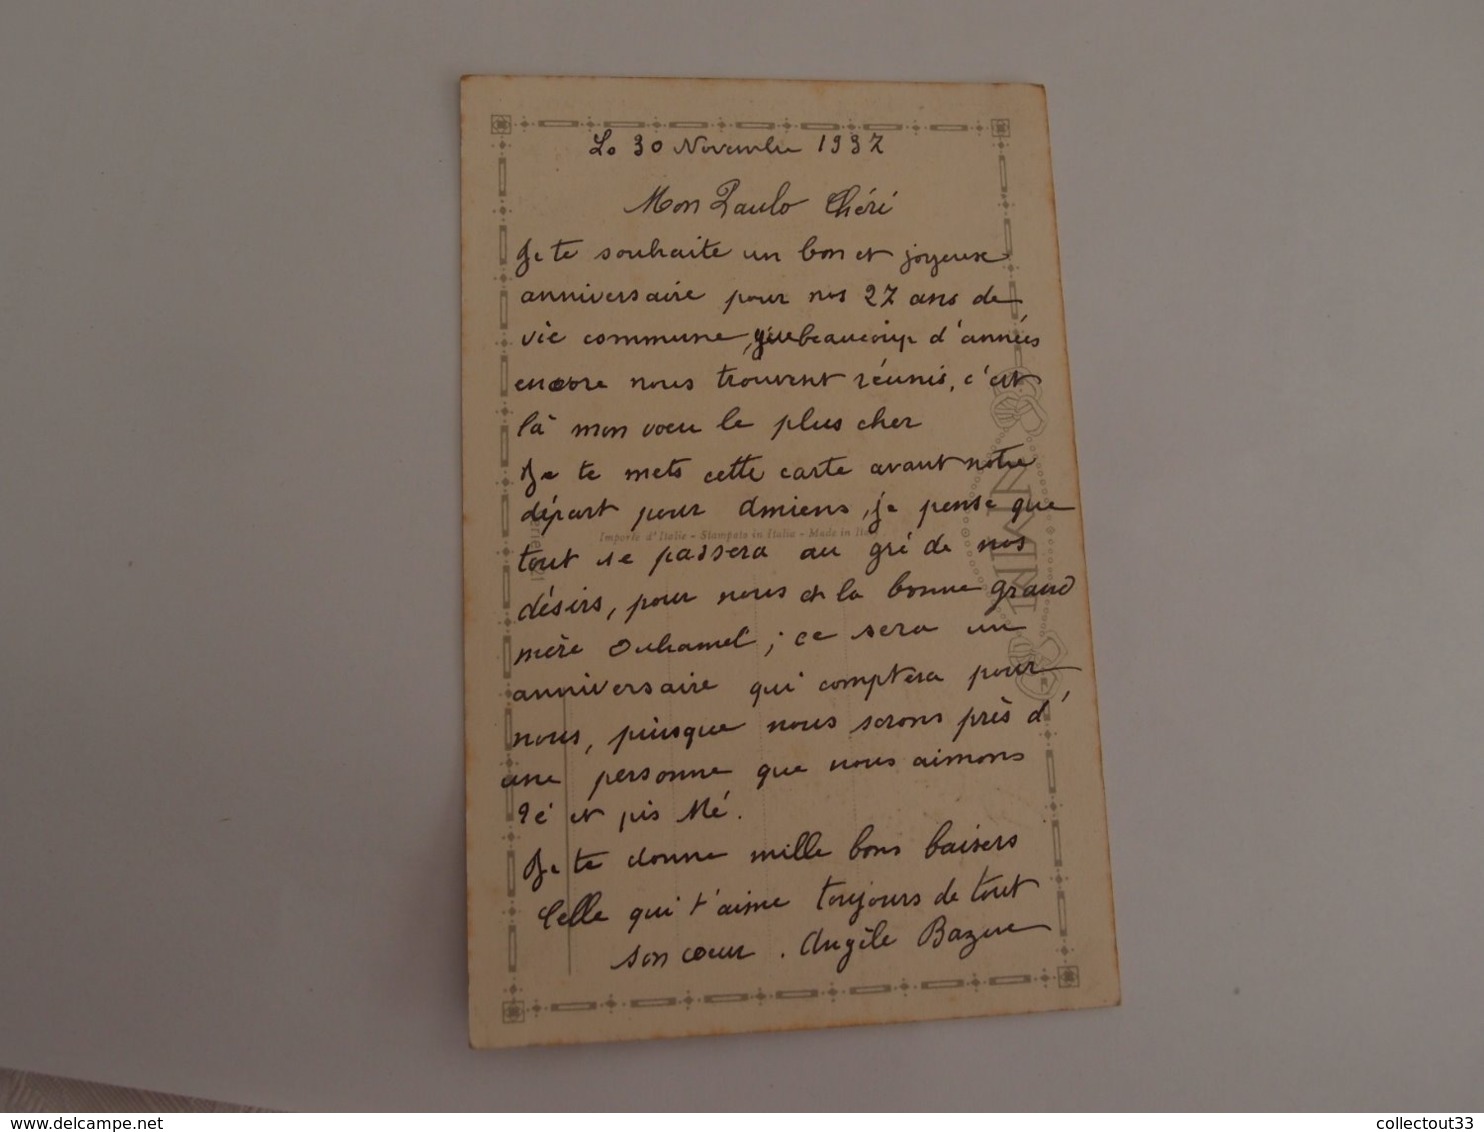 Le 30 Novembre 1937
Mon Paulo Chéri
Je te souhaite un bon et joyeux
anniversaire pour nos 27 ans de
vie commune, que beaucoup d'années
encore nous trouvent réunis, c'est
là mon voeu le plus cher
Je te mets cette carte avant notre
départ pour Amiens, je pense que
tout se passera au gré de nos
désirs, pour nous et la bonne grand
mère Duhamel ; ce sera un
anniversaire qui comptera pour
nous, puisque nous serons près d'
une personne que nous aimons
Pé et pis Mé.
Je te donne mille bons baisers
Celle qui t'aime toujours de tout
son coeur. Angèle Bazin
Importé d'Italie - Stampato in Italia - Made in Italy
NMM
www.delcampe.net
collectout33